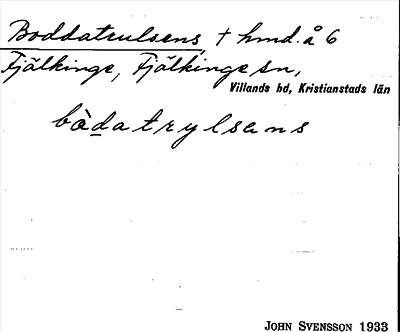 Boddatrulsens, † hmd. å 6
Fjälkinge, Fjälkinge sn,
Villands hd, Kristianstads län
bòdatrylsens
JOHN SVENSSON 1933